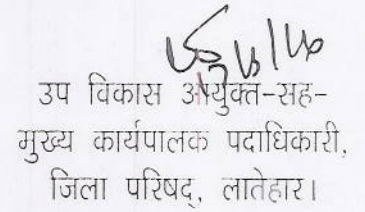 उप विकास आयुक्त-सह-
मुख्य कार्यपालक पदाधिकारी,
जिला परिषद्, लातेहार।